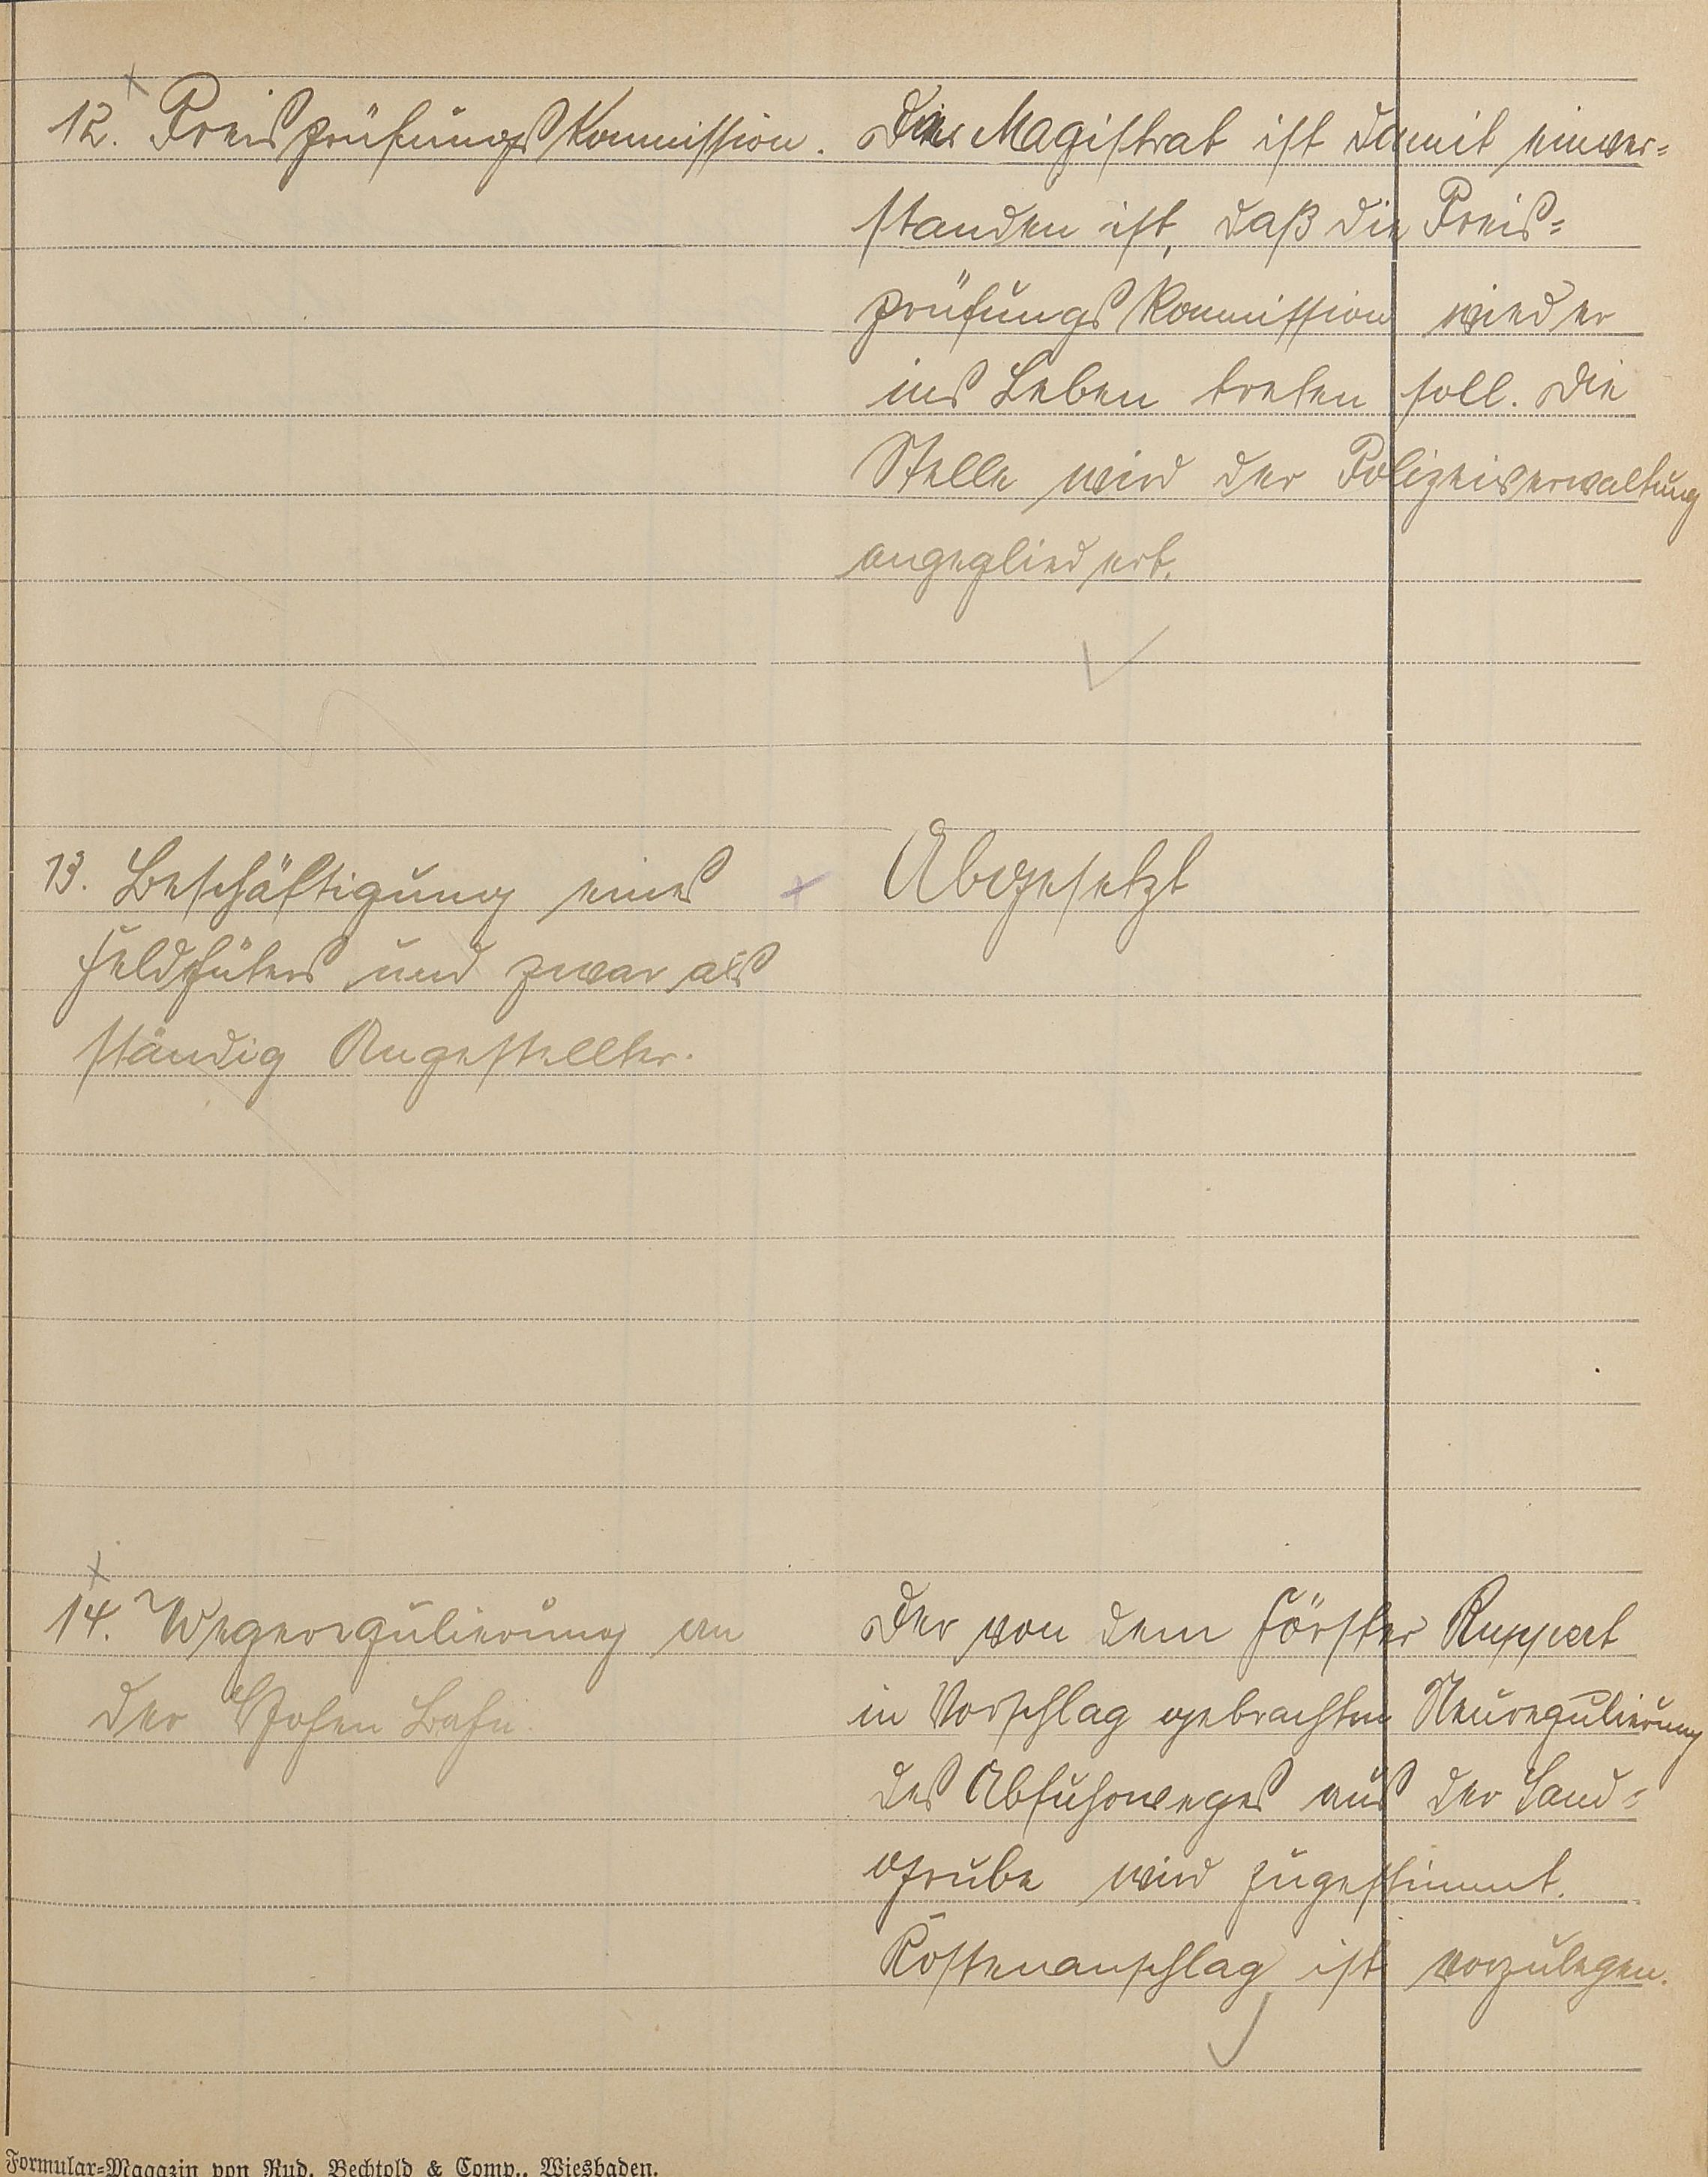 12. Preisprüfungskommission.
Der Magistrat ist damit einver=
standen ist, daß die Preis=
prüfungskommission wieder
ins Leben treten soll. Die
Stelle wird der Polizeiverwaltung
angegliedert.
13. Beschäftigung eines
Feldhüters und zwar als
ständig Angestellter.
Abgesetzt
14. Wegeregulierung an
der Hohen Bahn.
Der von dem Förster Ruppert
in Vorschlag gebrachten Neuregulierung
des Abfuhrweges aus der Sand=
grube wird zugestimmt.
Kostenanschlag ist vorzulegen.
Formular=Magazin von Rud. Bechtold & Comp., Wiesbaden.